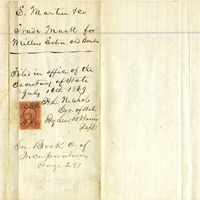 E. Martin & Co
Trade Mark for
Millers Extra Old Bourbon
Filed in office of the
Secretary of State
July 10th 1869
H. L. Nichols
Sec. of State
By Lew B. Harris
Dept
See Book 6 of
Incorporations
Page 281